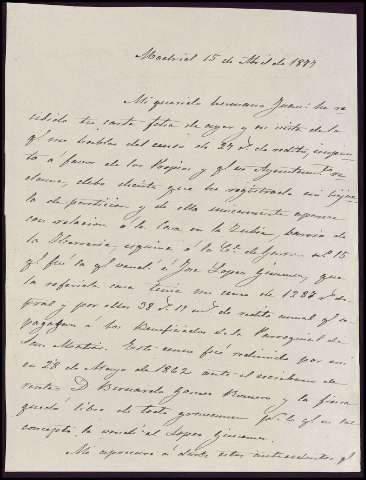 Madrid 15 de Abril de 1879
Mi querido hermano Juan: he re-
cibido tu carta fecha de ayer y en vista de lo
q.e me hablas del censo de 27 r.s de redito, impues-
to á favor de los Propios y q.e ese Ayuntam.to re-
clama, debo decirte que he registrado mi hijue-
la de particion y de ella unicamente aparece
con relacion á la Casa en la Zubia, barrio de
la esquina á la C.e de n.o 15
q.e fué la q.e vendí á Jose Lopez Gimenez, que
la referida casa tenia un censo de 1283 r.s ca-
pital y por ellos 38 r.s 17 m.s de redito anual q.e se
pagaban á los Beneficiados de la Parroquial de
San Matias. Este censo fué redimido por mí
en 28 de Mayo de 1862 ante el escribano de
D. Bernardo Gomez Romero y la finca
quedó libre de todo gravamen p.r lo q.e en ese
concepto la vendí al Lopez Gimenez.
Me apresuro á darte estos antecedentes p.a